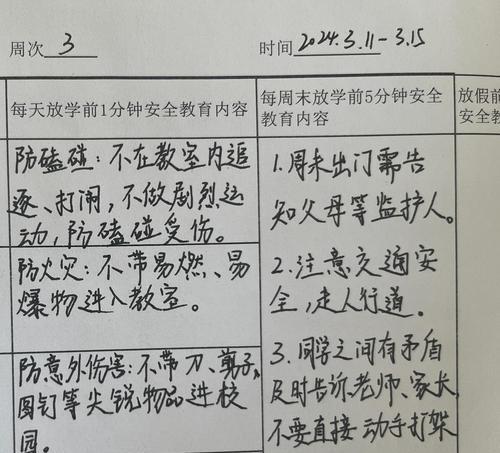 周次 3 时间 2024.3.11-3.15
每天放学前1分钟安全教育内容
防磕碰：不在教室内追
逐、打闹，不做剧烈运
动，防磕碰受伤。
防火灾：不带易燃、易
爆物进入教室。
防意外伤害：不带刀、剪子、
图钉等尖锐物品进校
园。
每周末放学前5分钟安全
教育内容
1.周末出门需告
知父母等监护人。
2.注意交通安
全，走人行道。
3.同学之间有矛盾
及时告诉老师、家长，
不要直接动手打架
放假前
安全教